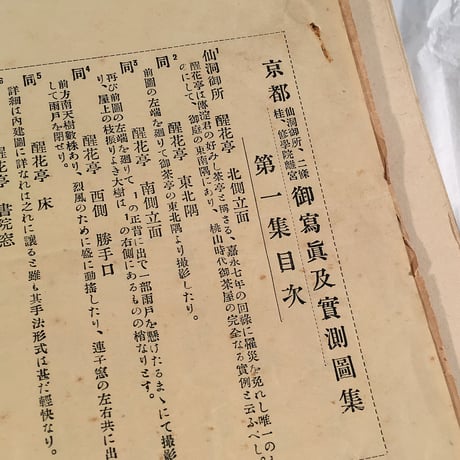 京都仙洞御所、二條桂、修學院離宮御寫眞及實測圖集
第一集目次
仙洞御所 醒花亭 北側立面
醒花亭は傳淀君の好みし茶亭と稱さる、嘉永七年の回祿に罹災を免れし唯一のも
のにして、御庭の東南隅にあり、桃山時代御茶屋の完全なる實例と云ふべし。
同2 醒花亭 東北隅
前圖の左端を廻りて御茶亭の東北隅より撮影したり。
同3 醒花亭 南側立面
再び前圖の左端を廻りて、一の正背に出で一部雨戸を懸けたるまゝにて撮影
り、屋上の枝振りよき大樹は、一の右側にあるものの梢なりとす。
同4 醒花亭 西側 勝手口
前方南天樹數株あり、烈風のために盛に動搖したり、連子窓の左右共に出
して雨戸を閉せり。
同5 醒花亭 床
詳細は内建圖に詳なればこれに讓ると雖も其手法形式は甚だ輕快なり。
6 醒花亭 書院窓